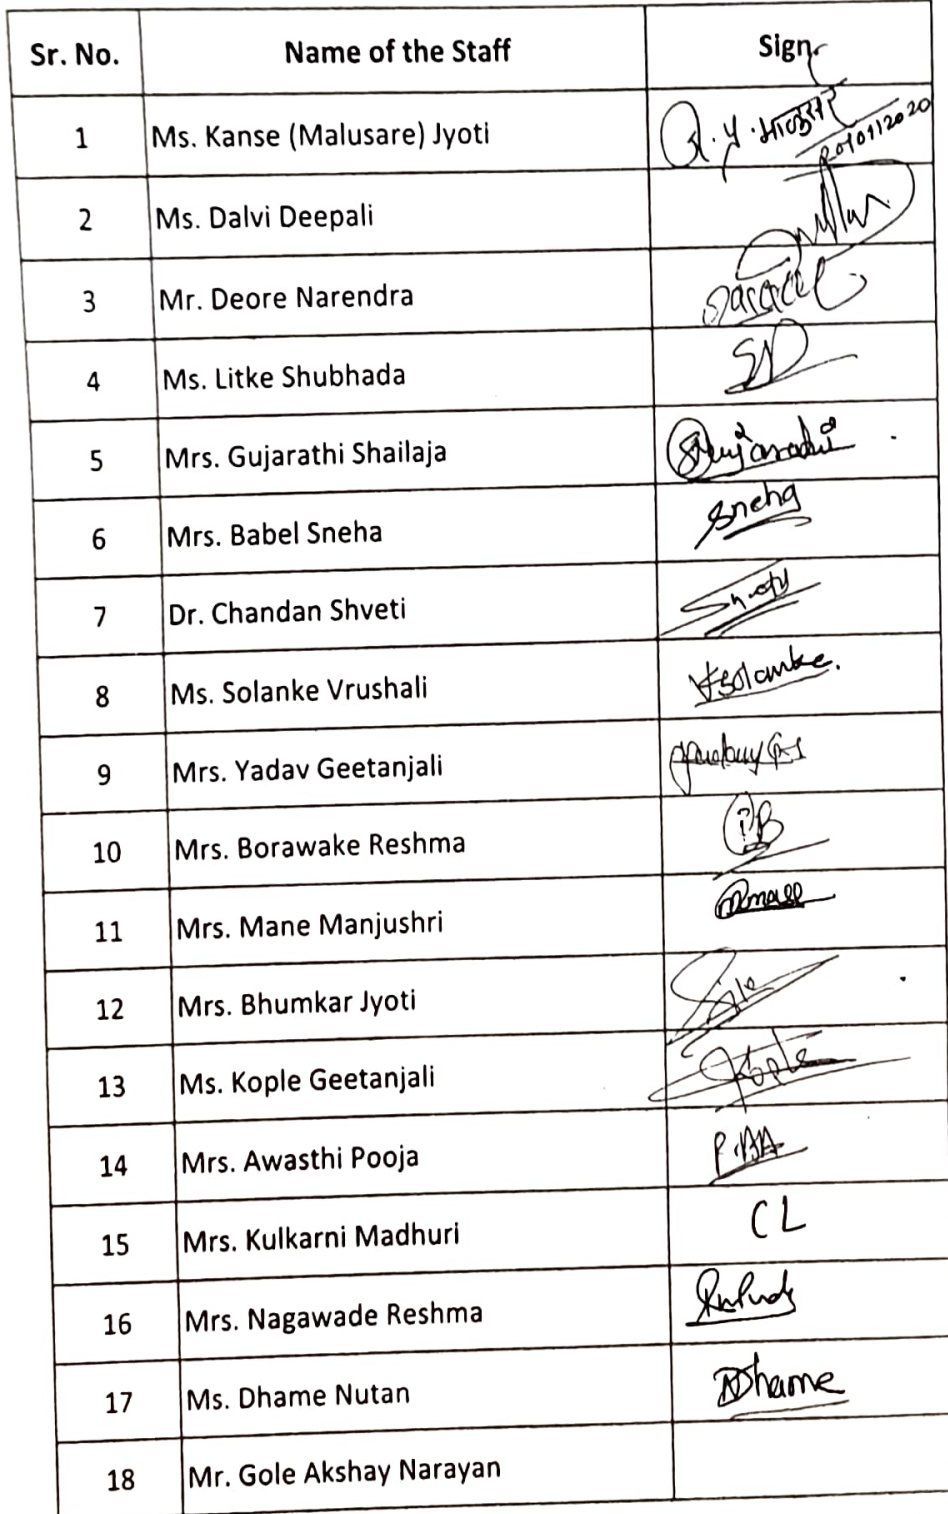 Sr. No. Name of the Staff Sign
1 Ms. Kanse (Malusare) Jyoti मालुसरे
20/01/2020
2 Ms. Dalvi Deepali
3 Mr. Deore Narendra
4 Ms. Litke Shubhada SD
5 Mrs. Gujarathi Shailaja
6 Mrs. Babel Sneha Sneha
7 Dr. Chandan Shveti
8 Ms. Solanke Vrushali VSolanke.
9 Mrs. Yadav Geetanjali
10 Mrs. Borawake Reshma
11 Mrs. Mane Manjushri
12 Mrs. Bhumkar Jyoti
13 Ms. Kople Geetanjali Kople
14 Mrs. Awasthi Pooja
15 Mrs. Kulkarni Madhuri CL
16 Mrs. Nagawade Reshma
17 Ms. Dhame Nutan NDhame
18 Mr. Gole Akshay Narayan